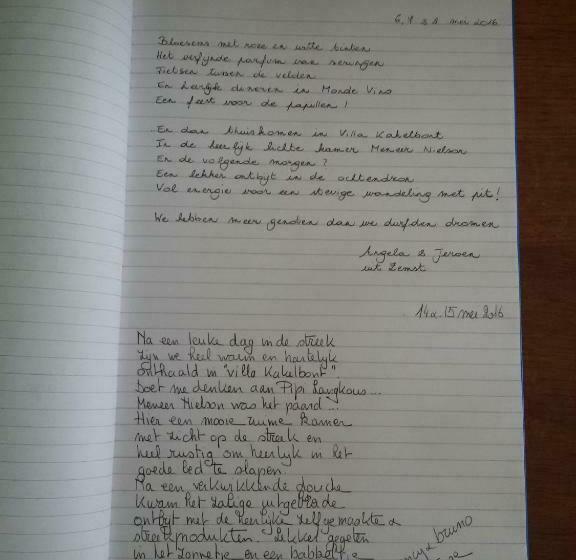 6, 7 & 8 mei 2016
Bloesems met roze en witte tinten
Het verfijnde parfum van seringen
Fietsen tussen de velden
En heerlijk dineren in Monde Vino
Een feest voor de papillen !
En dan thuiskomen in Villa Kakelbont
In de heerlijk lichte kamer Meneer Nielson
En de volgende morgen ?
Een lekker ontbijt in de ochtendzon
Vol energie voor een stevige wandeling met pit!
We hebben meer genoten dan we durfden dromen
Angela & Jeroen
uit Zemst
14 & 15 mei 2016
Na een leuke dag in de streek
Zijn we heel warm en hartelijk
onthaald in "Villa Kakelbont".
Doet me denken aan Pipi Langkous...
Meneer Nielson was het paard...
Hier een mooie ruime kamer
met zicht op de streek en
heel rustig om heerlijk in het
goede bed te slapen.
Na een verkwikkende douche
Kwam het zalige uitgebreide
ontbijt met de heerlijke zelfgemaakte &
streekprodukten. Lekker gegeten
in het zonnetje en een babbeltje
& bruno